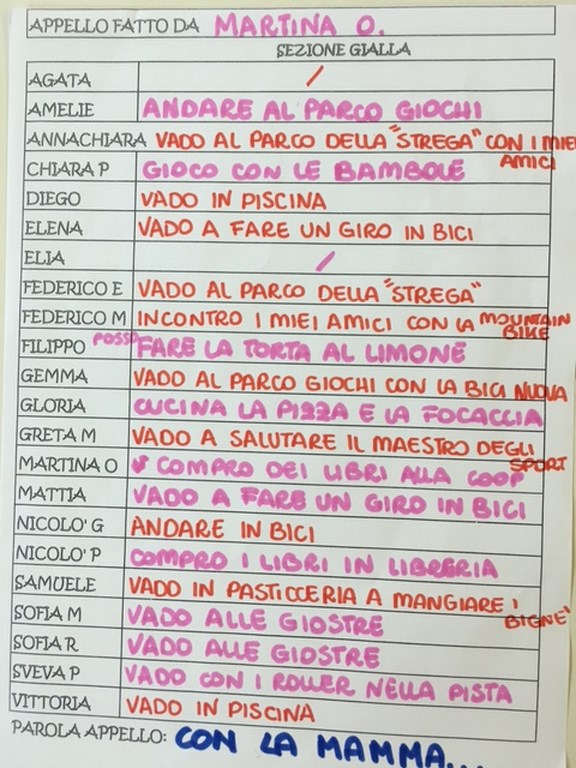 APPELLO FATTO DA MARTINA O.
SEZIONE GIALLA
AGATA /
AMELIE ANDARE AL PARCO GIOCHI
ANNACHIARA VADO AL PARCO DELLA "STREGA" CON I MIEI AMICI
CHIARA P GIOCO CON LE BAMBOLE
DIEGO VADO IN PISCINA
ELENA VADO A FARE UN GIRO IN BICI
ELIA /
FEDERICO E VADO AL PARCO DELLA "STREGA"
FEDERICO M INCONTRO I MIEI AMICI CON LA MOUNTAIN BIKE
FILIPPO POSSO FARE LA TORTA AL LIMONE
GEMMA VADO AL PARCO GIOCHI CON LA BICI NUOVA
GLORIA CUCINA LA PIZZA E LA FOCACCIA
GRETA M VADO A SALUTARE IL MAESTRO DEGLI SPORT
MARTINA O COMPRO DEI LIBRI ALLA COOP
MATTIA VADO A FARE UN GIRO IN BICI
NICOLO' G ANDARE IN BICI
NICOLO' P COMPRO I LIBRI IN LIBRERIA
SAMUELE VADO IN PASTICCERIA A MANGIARE I BIGNE'
SOFIA M VADO ALLE GIOSTRE
SOFIA R VADO ALLE GIOSTRE
SVEVA P VADO CON I ROLLER NELLA PISTA
VITTORIA VADO IN PISCINA
PAROLA APPELLO: CON LA MAMMA...